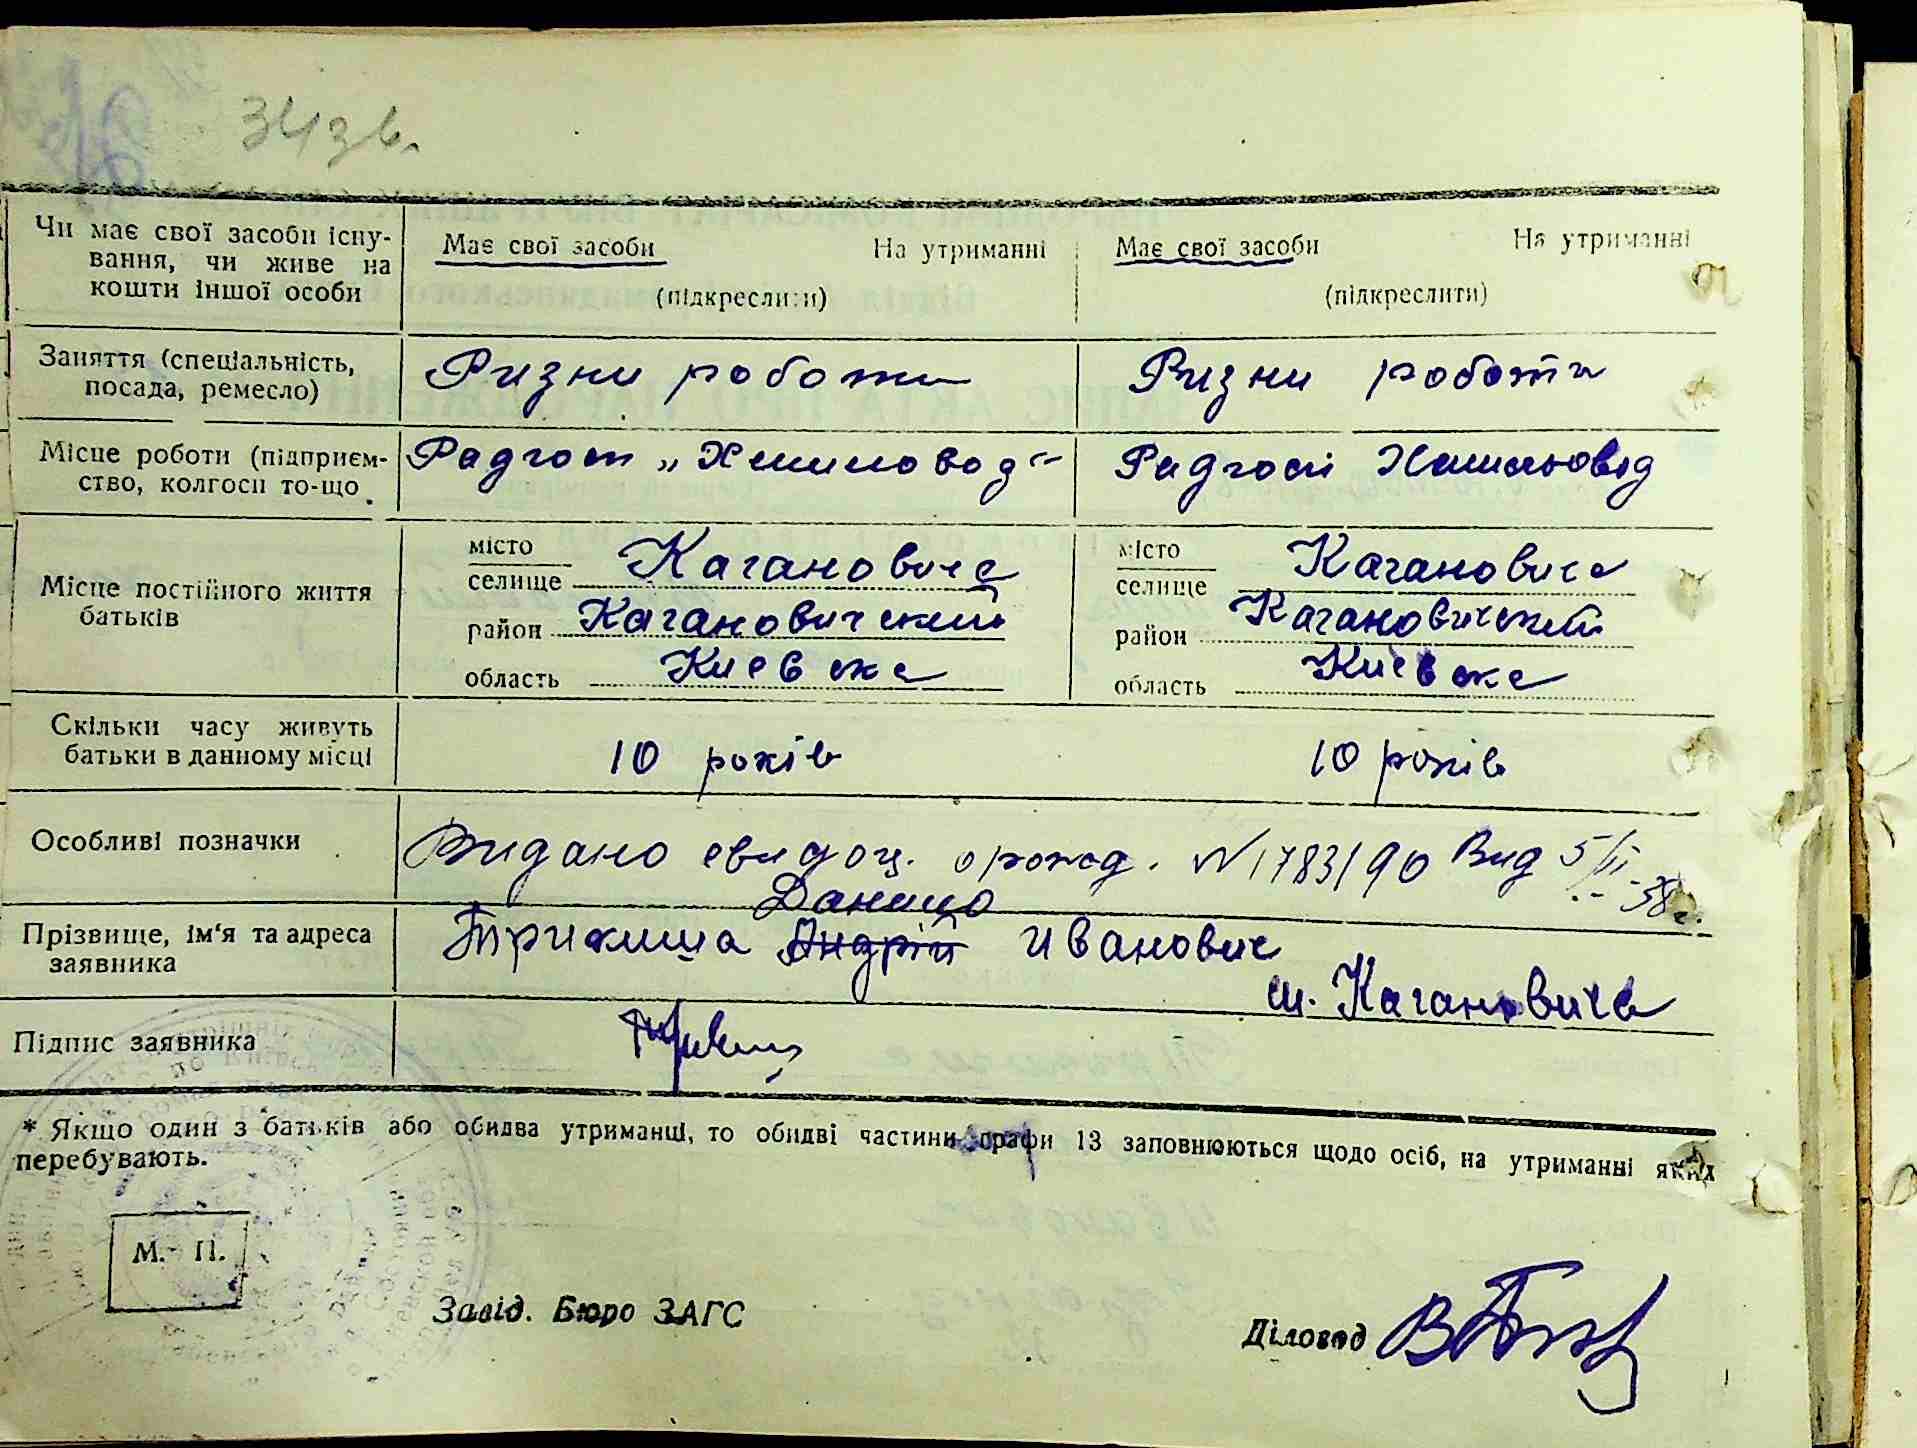 34 зв.
Чи має свої засоби існу-
вання, чи живе на
кошти іншої особи
Має свої засоби На утриманні
(підкреслити)
Має свої засоби На утриманні
(підкреслити)
Заняття (спеціальність,
посада, ремесло)
Ризни роботи
Ризни роботи
Місце роботи (підприєм-
ство, колгосп то-що
Радгосп
Радгосп
Місце постійного життя
батьків
місто
селище Кагановича
район Кагановичский
область Киевска
місто
селище Кагановича
район Кагановичский
область Киевска
Скільки часу живуть
батьки в данному місці
10 років
10 років
Особливі позначки
Видано свидоц. о рожд. N 1783/90 Вид 5/II-38г.
Прізвище, ім'я та адреса
заявника
Данило
Трикиша Андрій Иванович
м. Кагановича
Підпис заявника
* Якщо один з батьків або обидва утриманці, то обидві частини графи 13 заповнюються щодо осіб, на утриманні яких
перебувають.
М. П.
Завід. Бюро ЗАГС
Діловод